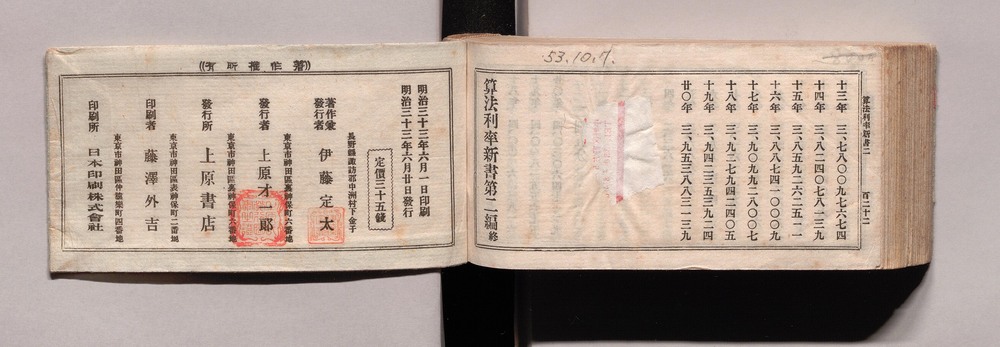 53.10.7.
算法利率新書二
百二十二
十三年 三、七八〇〇九七六七四
十四年 三、八二四〇七八一三九
十五年 三、八五九二六二五一一
十六年 三、八八七四一〇〇〇九
十七年 三、九〇九九二八〇〇七
十八年 三、九二七九四二四〇五
十九年 三、九四二三五三九二四
廿〇年 三、九五三八八三一三九
算法利率新書第二編終
((著作權所有))
明治三十三年六月一日印刷
明治三十三年六月廿日發行
定價三十五錢
長野縣諏訪郡中洲村下金子
著作兼發行者 伊藤定太
東京市神田區裏神保町六番地
發行者 上原才一郎
東京市神田區裏神保町六番地
發行所 上原書店
東京市神田區表神保町二番地
印刷者 藤澤外吉
東京市神田區仲猿樂町四番地
印刷所 日本印刷株式會社